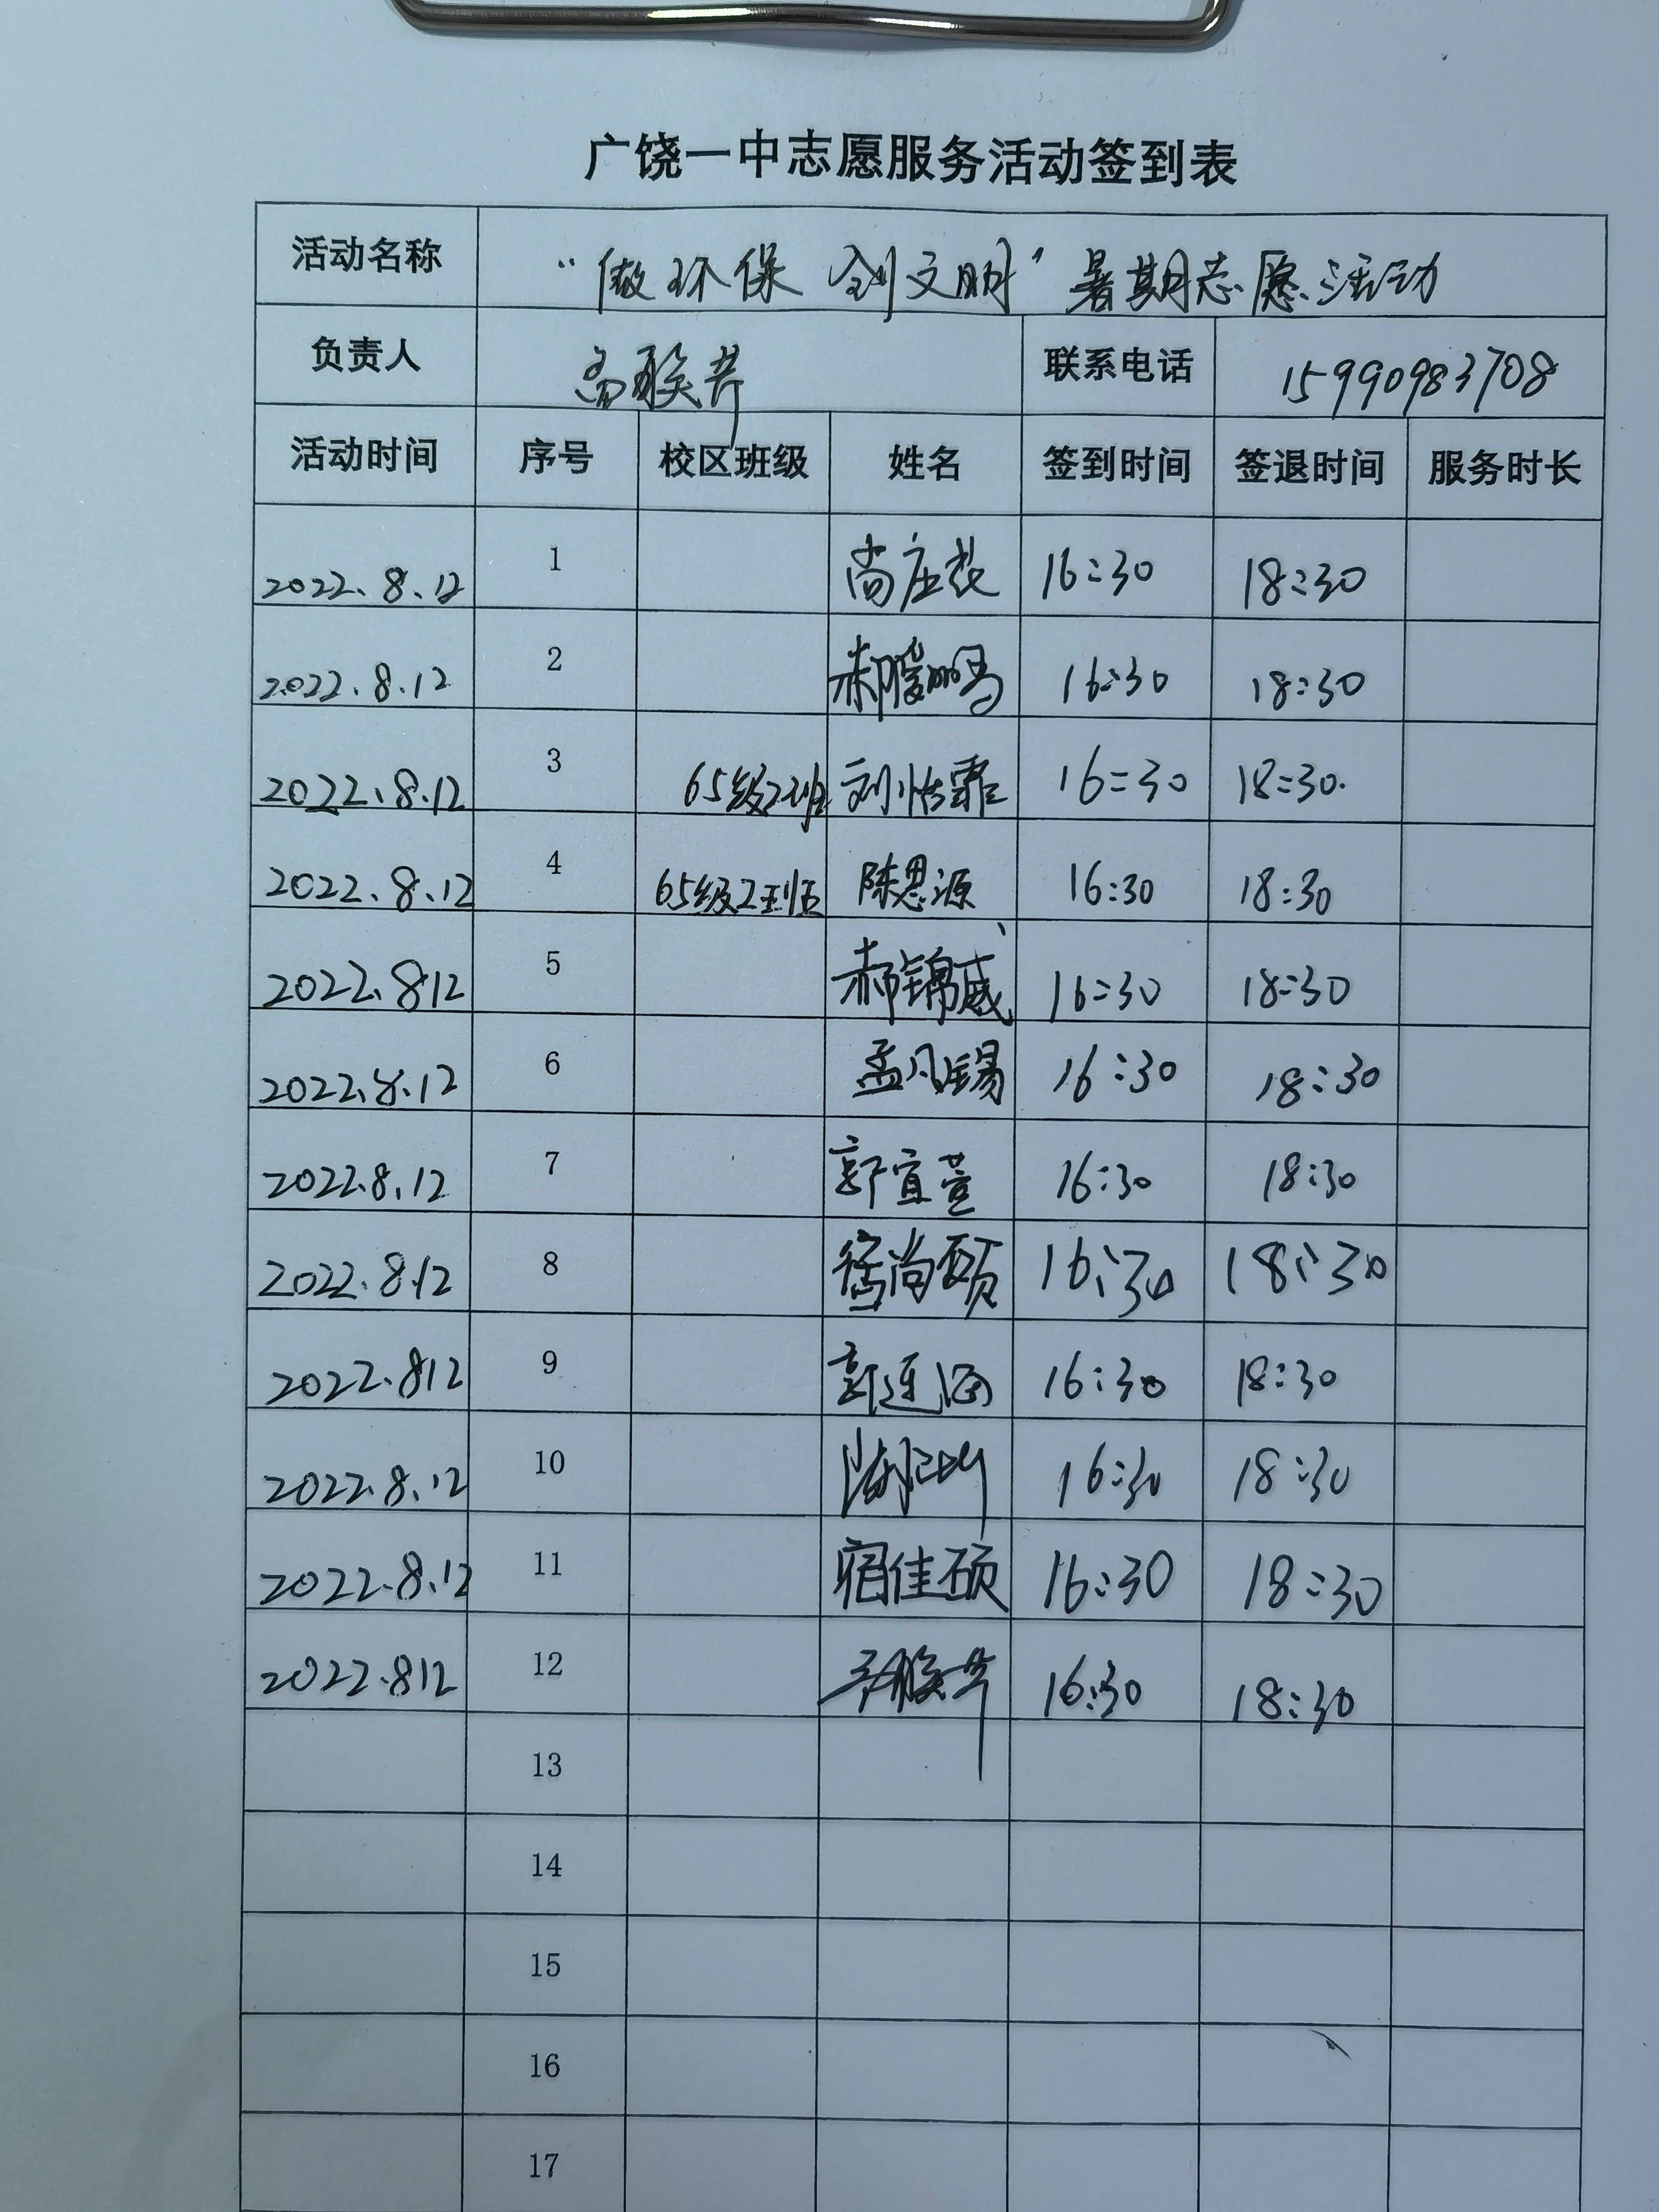 广饶一中志愿服务活动签到表
活动名称 “做环保 创文明”暑期志愿活动
负责人 联系电话 15990983708
活动时间 序号 校区班级 姓名 签到时间 签退时间 服务时长
2022.8.12 1 16:30 18:30
2022.8.12 2 16:30 18:30
2022.8.12 3 65级22班 刘怡霏 16:30 18:30
2022.8.12 4 65级 陈思源 16:30 18:30
2022.812 5 郝锦威 16:30 18:30
2022.8.12 6 孟凡锡 16:30 18:30
2022.8.12 7 郭宜萱 16:30 18:30
2022.8.12 8 尚硕 16:30 18:30
2022.812 9 郭连海 16:30 18:30
2022.8.12 10 16:30 18:30
2022.8.12 11 宿佳硕 16:30 18:30
2022.812 12 16:30 18:30
13
14
15
16
17